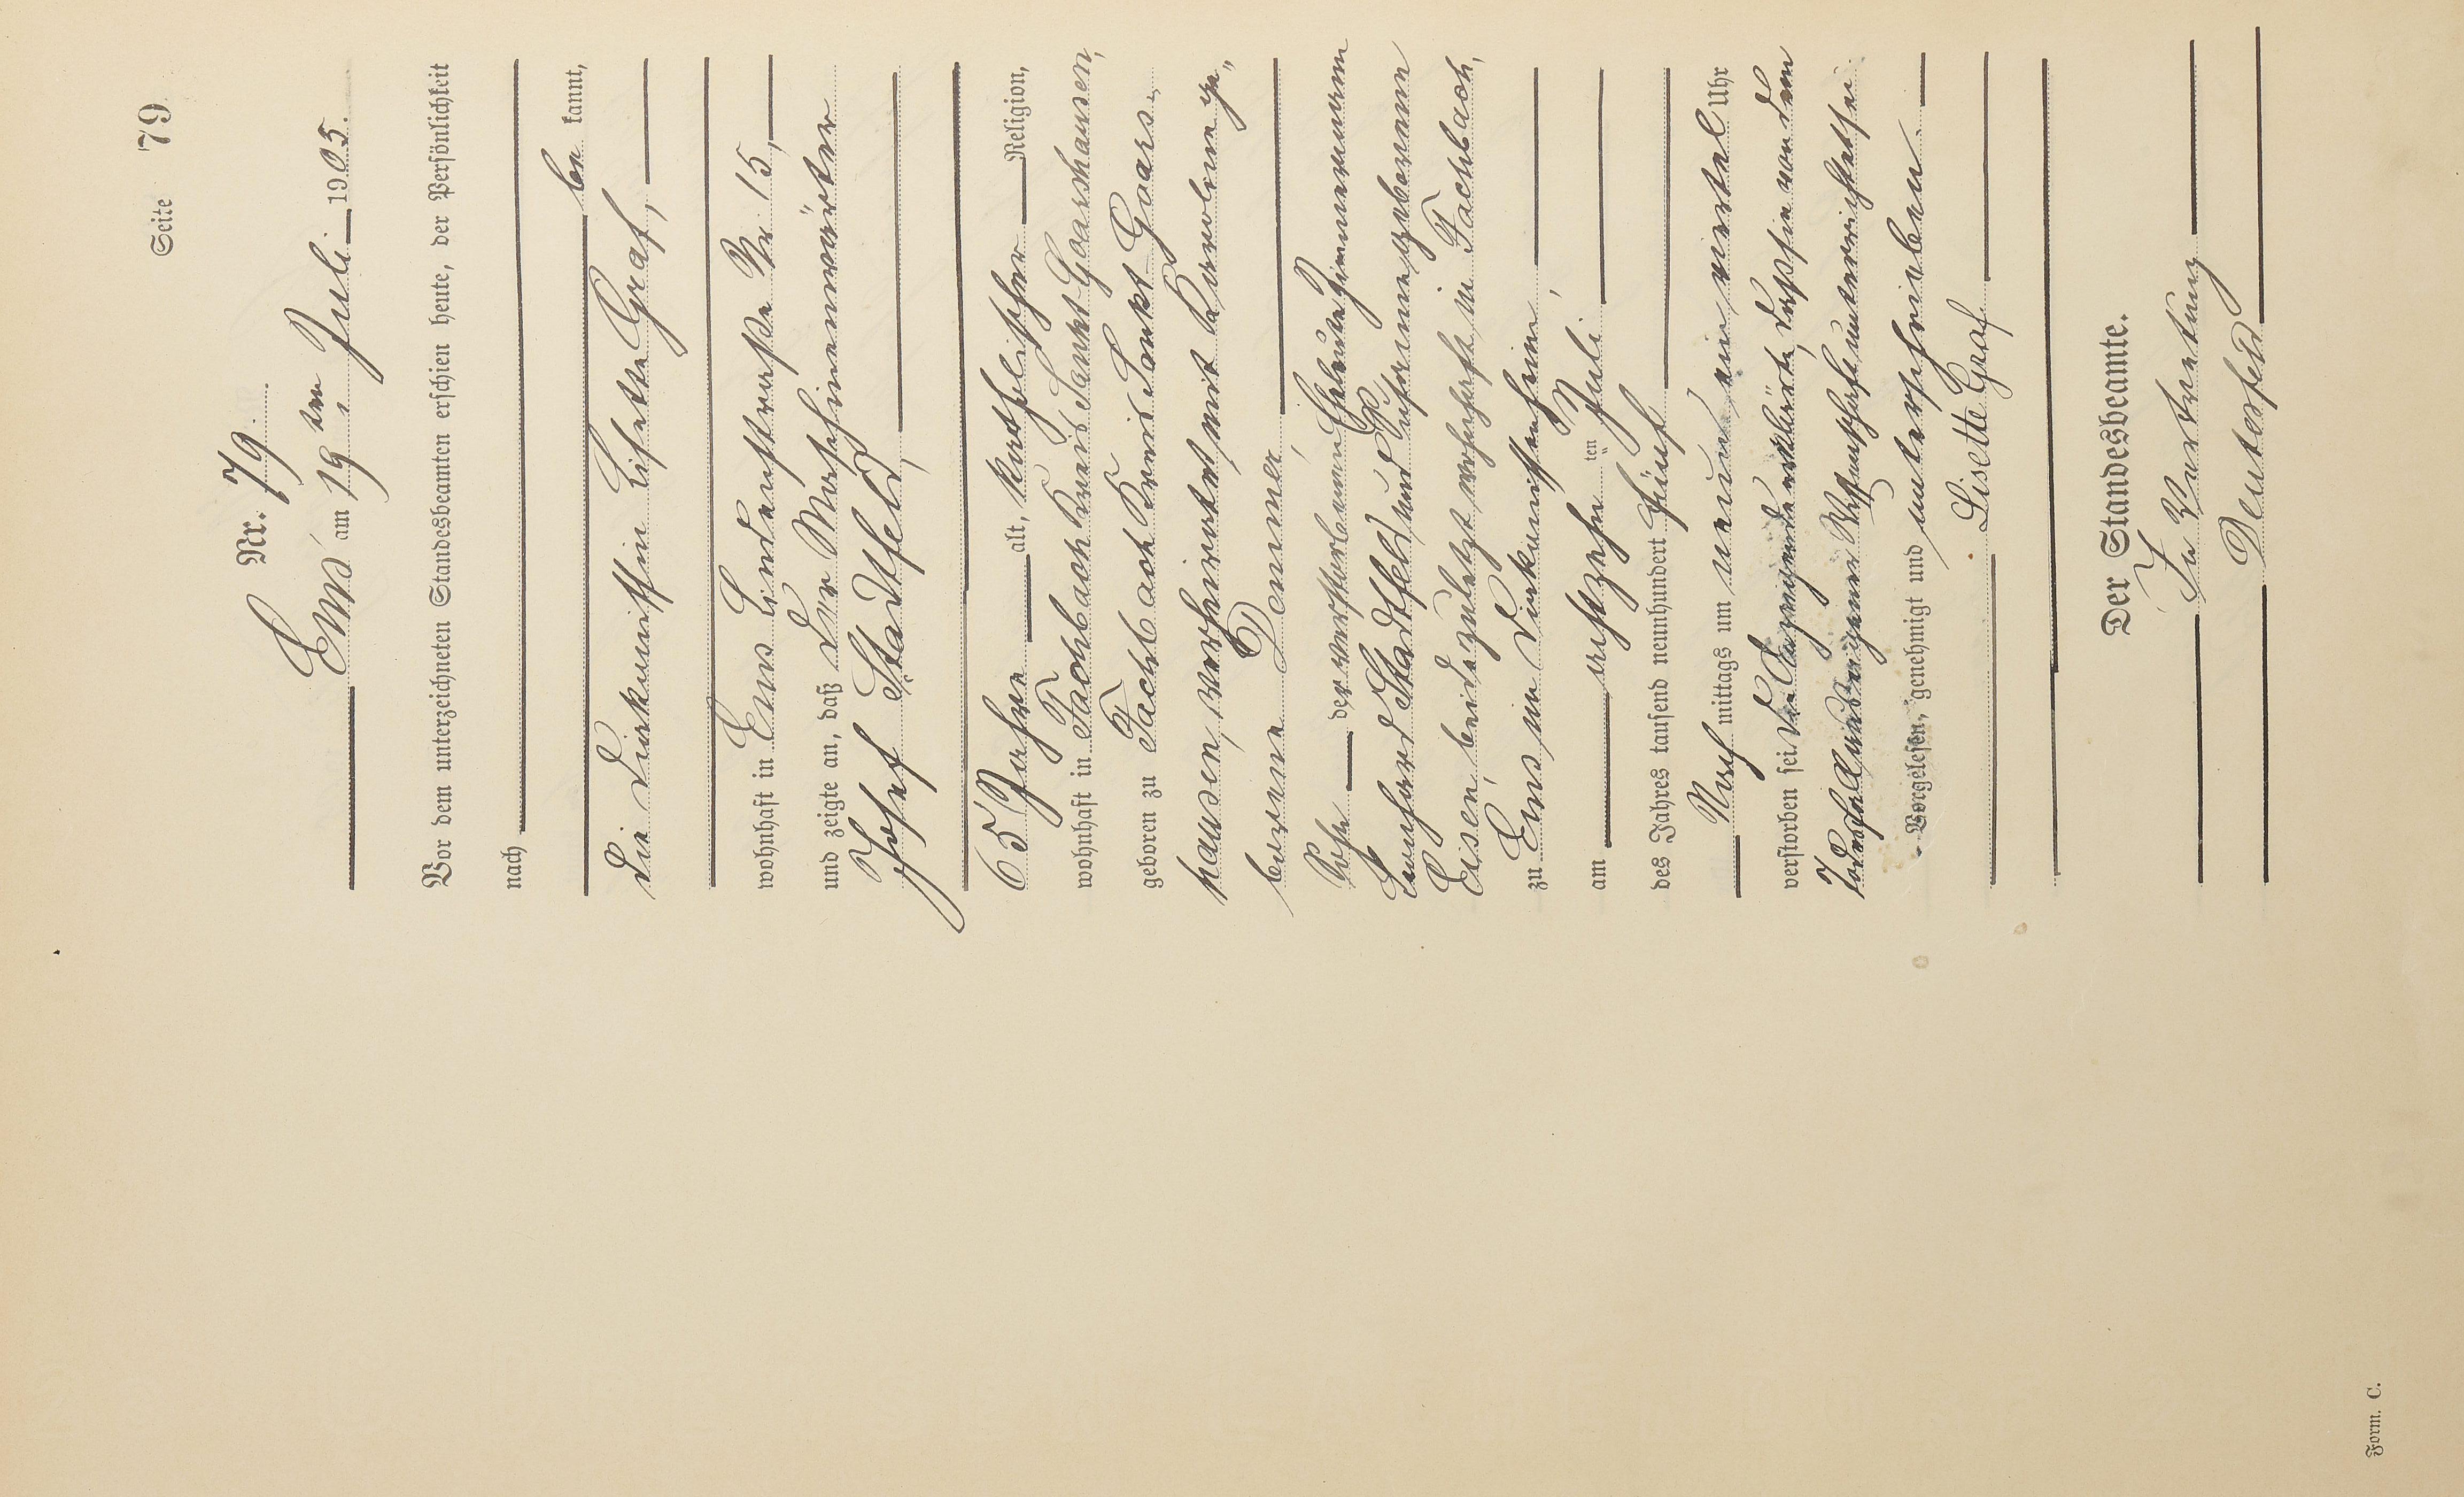 Seite 79
Nr. 79.
Ems am 19ten Juli 1905.
Vor dem unterzeichneten Standesbeamten erschien heute, der Persönlichkeit
nach
be kannt,
die Diakonissin Lisette Graf,
wohnhaft in Ems Lindenstraße Nr. 15,
und zeigte an, daß der Maschinenwärter
Josef Stadtfeld,
65 Jahre alt, katholischer Religion,
wohnhaft in Fachbach Kreis Sankt Goarshausen,
geboren zu Fachbach Kreis Sankt Goars-
hausen, verheiratet mit Karoline ge-
borene Demmer,
Sohn der verstorbenen Eheleute Zimmermann
Leonhard Stadtfeld und geborene
Eisen, beide zuletzt wohnhaft in Fachbach,
zu Ems im Diakonissenheim,
am achtzehn ten Juli
des Jahres tausend neunhundert fünf
Nach mittags um neun ein viertel Uhr
verstorben sei. Die Anzeigende erklärte, daß sie von dem
Todesfall aus eigener Wissenschaft unterrichtet sei.
Vorgelesen, genehmigt und unterschrieben
Lisette Graf
Der Standesbeamte.
In Vertretung
Deutesfeld
Form. C.